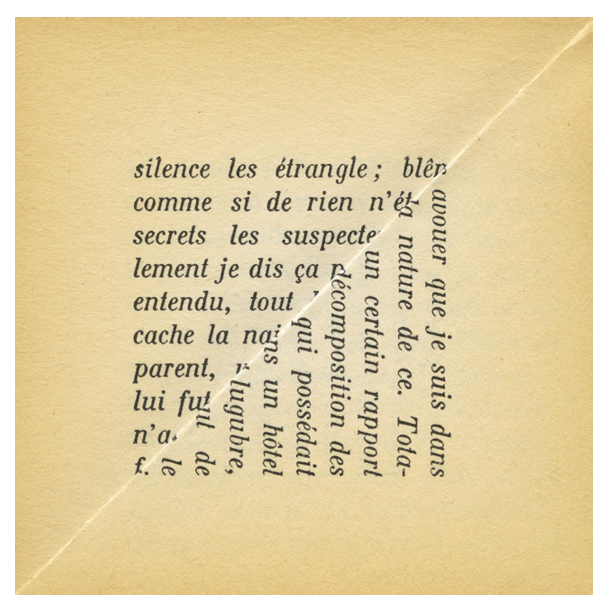 silence les étrangle ; blê
comme si de rien n'ét
secrets les suspecte
lement je dis ça
entendu, tout
cache la nai
parent,
lui fut
n'a
f.
avouer que je suis dans
la nature de ce. Tota-
un certain rapport
décomposition des
qui possédait
ns un hôtel
lugubre,
ut de
le